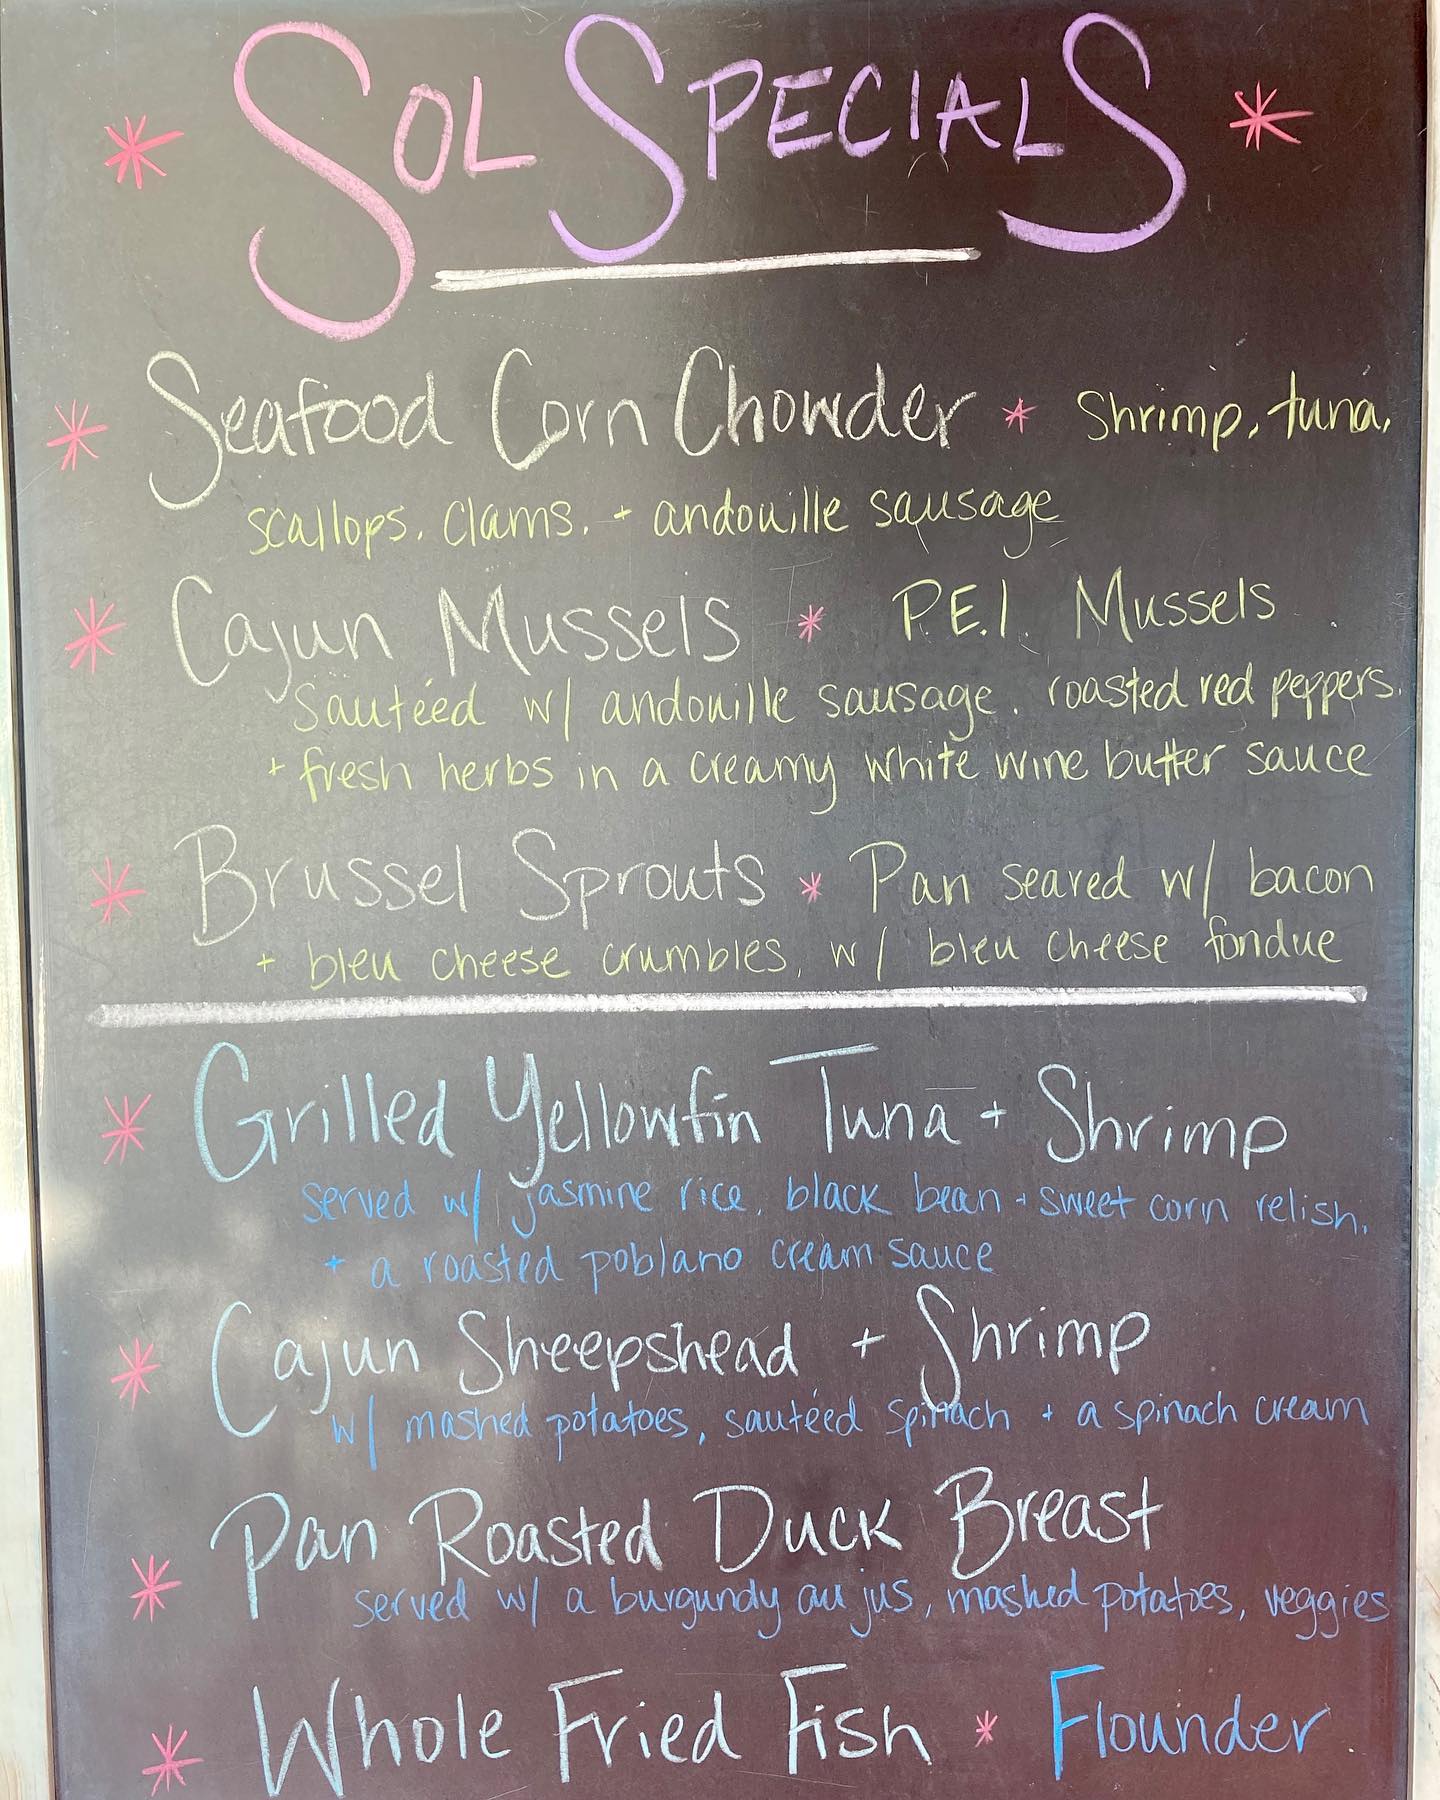 * SOL SPECIALS *
* Seafood Corn Chowder * Shrimp, tuna,
scallops, clams, + andouille sausage
* Cajun Mussels * P.E.I. Mussels
sauteéd w/ andouille sausage, roasted red peppers,
+ fresh herbs in a creamy white wine butter sauce
* Brussel Sprouts * Pan seared w/ bacon
+ bleu cheese crumbles, w/ bleu cheese fondue
* Grilled Yellowfin Tuna + Shrimp
served w/ jasmine rice, black bean + sweet corn relish,
+ a roasted poblano cream sauce
* Cajun Sheepshead + Shrimp
w/ mashed potatoes, sauteéd spinach + a spinach cream
* Pan Roasted Duck Breast
served w/ a burgundy au jus, mashed potatoes, veggies
* Whole Fried Fish * Flounder